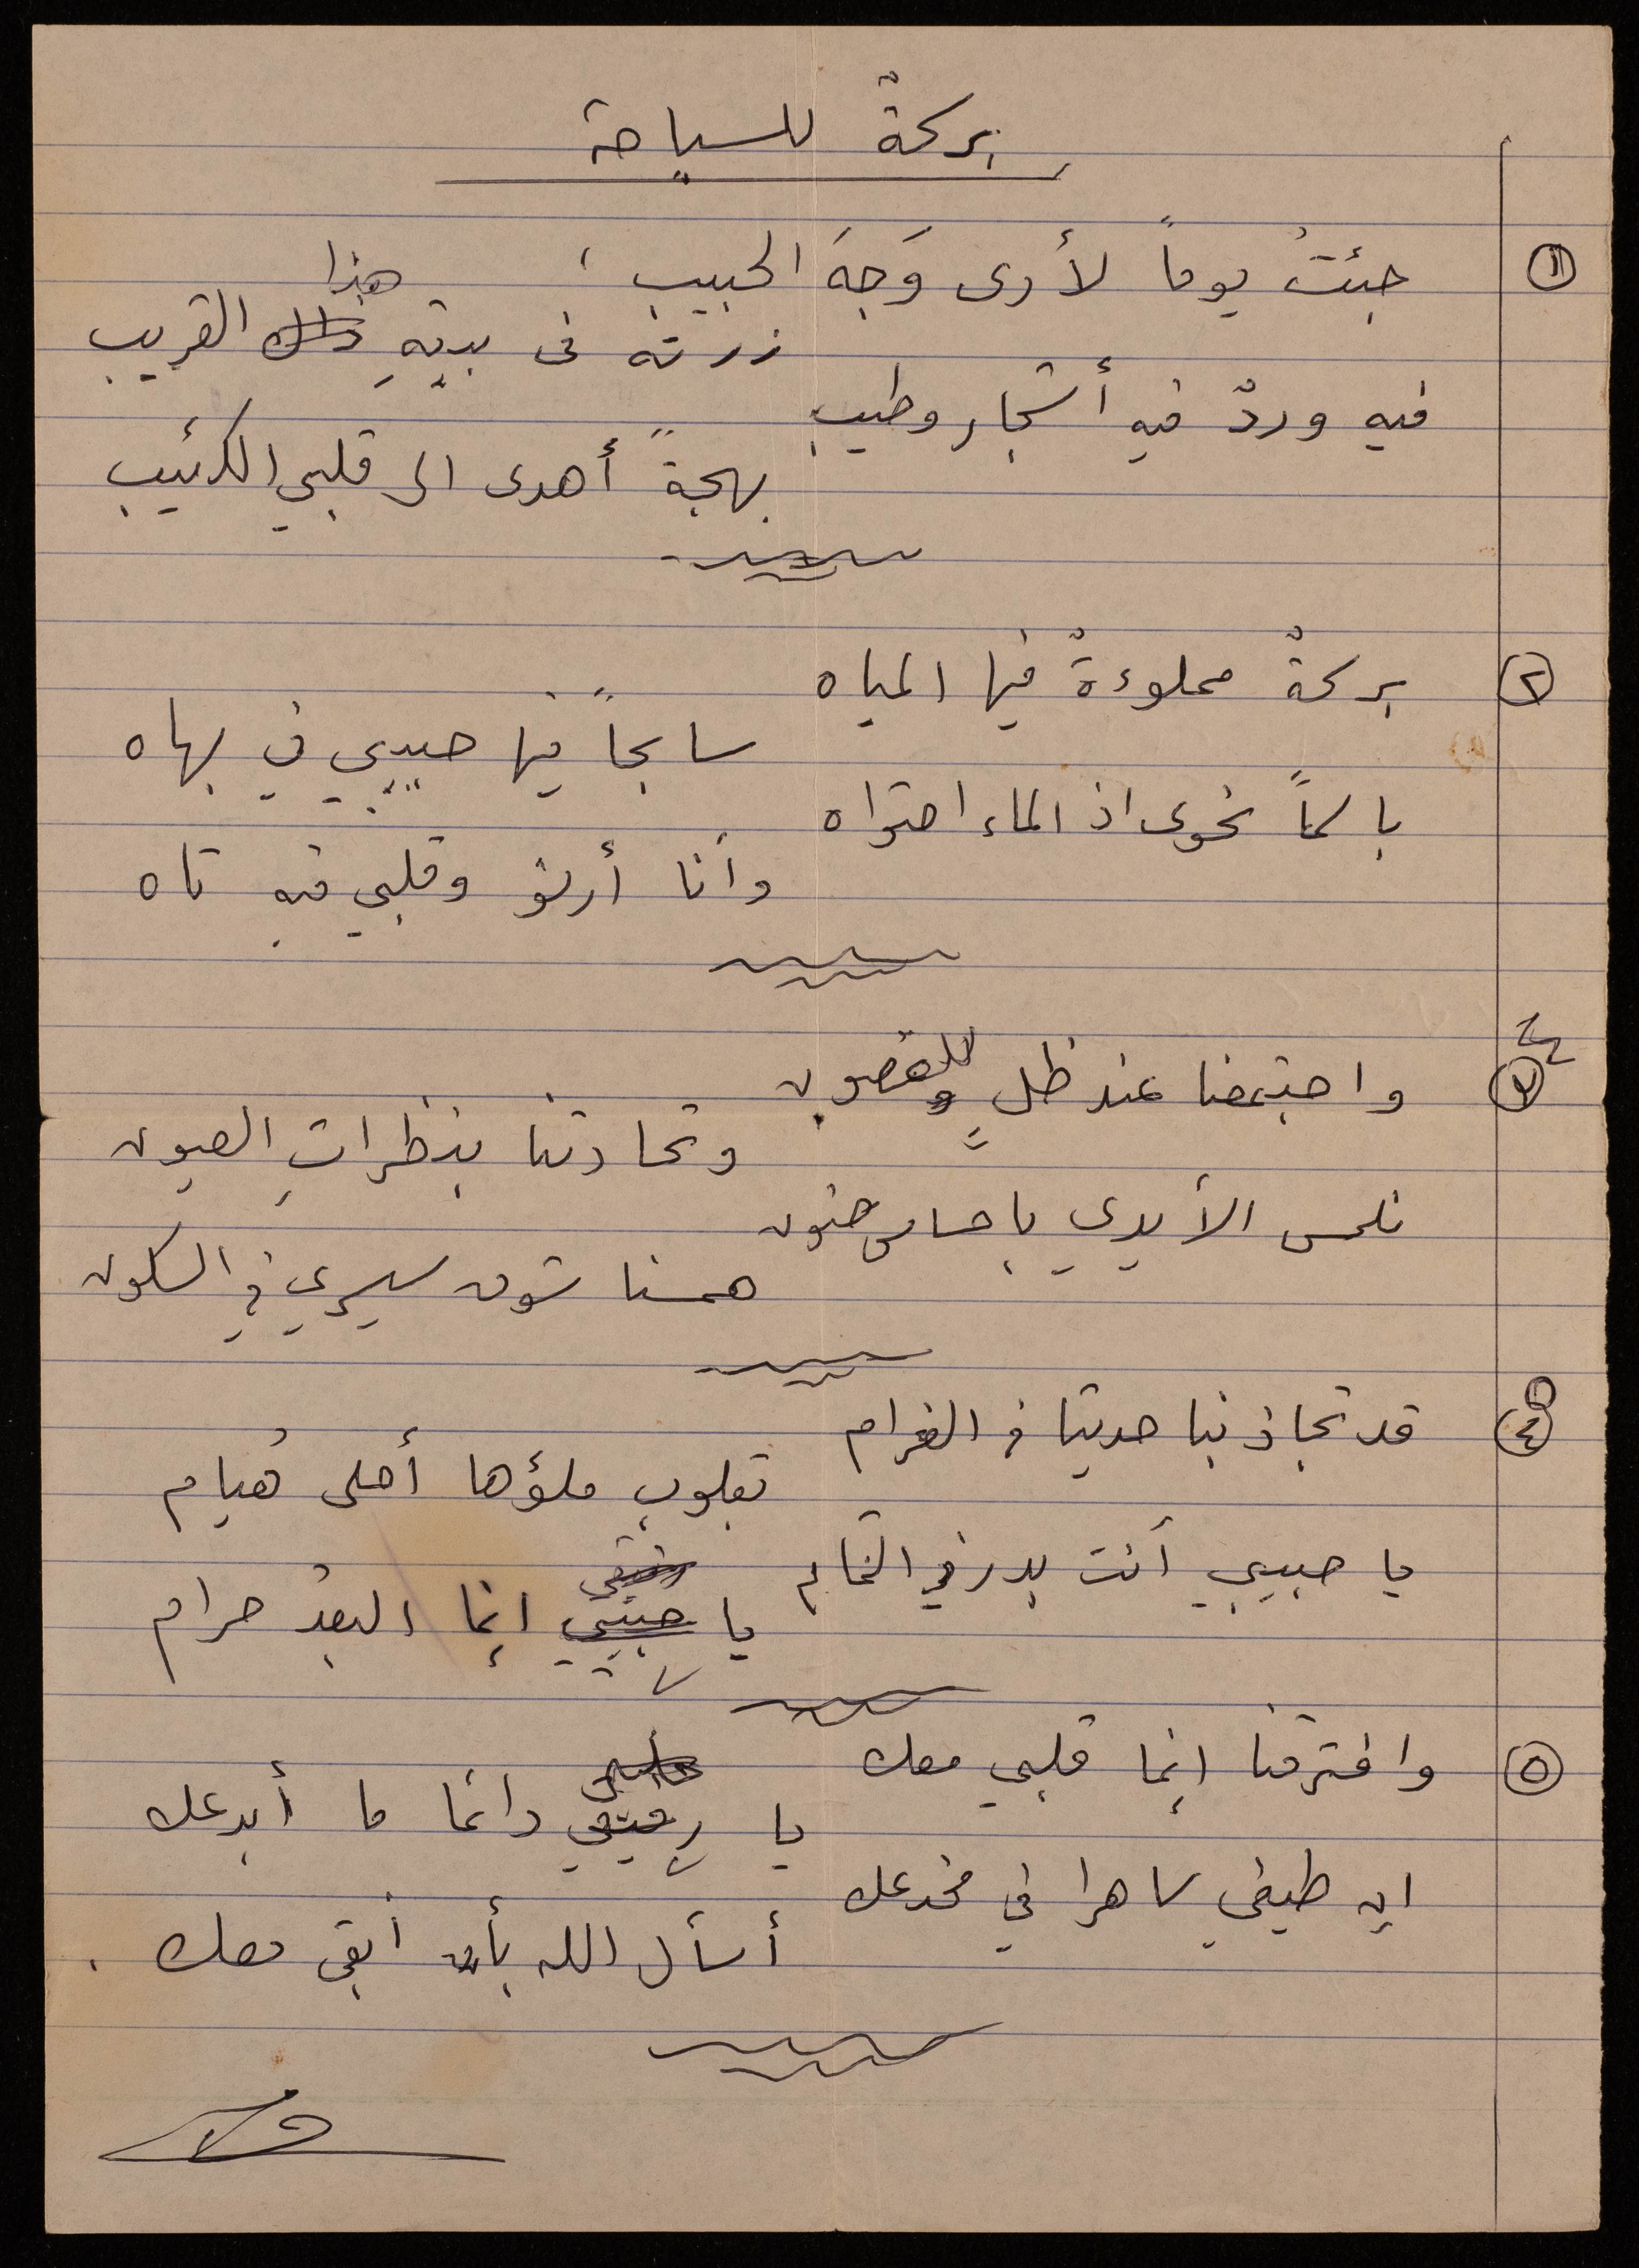 بركةٌ للسباحة
١ جئتُ يوماً لأرى وَجهَ الحبيب ،
هذا
زرته في بيتهِ ذلك القريب
فيه وردٌ فيه أشجار وطيب
بهجةً أهدى الى قلبي الكئيب
٢ بركةٌ مملوءةٌ فيها المياه
سابحاً فيها حبيبي في بهاه
باسماً نحوى اذ الماء احتواه
وأنا أرنو وقلبي فيه تاه
٣ واجتمعنا عند ظلٍ للغصون
وتحادثنا بنظراتِ العيون
نلمس الأيدي باحساس حنون
همسنا شوق سيري في السكون
٤ قد تجاذبنا حديثا في الغرام
بقلوبٍ ملؤها أحلى هُيام
يا حبيبي أنت بدر في التمام
يا حبيبي إنما البعدُ حرام
٥ وافترقنا إنما قلبي معك
يا رفيقي دائما ما أبدعك
ان طيفي ساهرا في مخدعك
أسأل الله بأن أبقى معك .